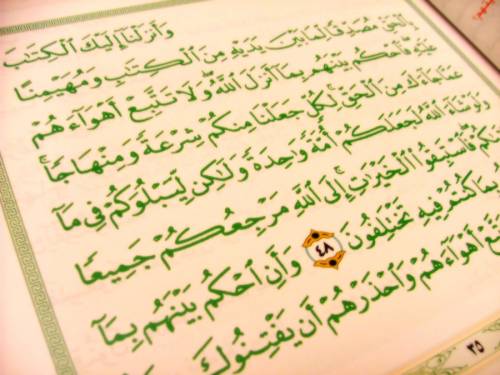 وَأَنزَلْنَا إِلَيْكَ الْكِتَٰبَ
بِالْحَقِّ مُصَدِّقًا لِّمَا بَيْنَ يَدَيْهِ مِنَ الْكِتَٰبِ وَمُهَيْمِنًا
عَلَيْهِ فَاحْكُم بَيْنَهُم بِمَا أَنزَلَ اللَّهُ وَلَا تَتَّبِعْ أَهْوَاءَهُمْ
عَمَّا جَاءَكَ مِنَ الْحَقِّ لِكُلٍّ جَعَلْنَا مِنكُمْ شِرْعَةً وَمِنْهَاجًا
وَلَوْ شَاءَ اللَّهُ لَجَعَلَكُمْ أُمَّةً وَٰحِدَةً وَلَٰكِن لِّيَبْلُوَكُمْ فِي مَا
فَاسْتَبِقُوا الْخَيْرَٰتِ إِلَى اللَّهِ مَرْجِعُكُمْ جَمِيعًا
كُنتُمْ فِيهِ تَخْتَلِفُونَ ٤٨ وَأَنِ احْكُم بَيْنَهُم بِمَا
أَهْوَاءَهُمْ وَاحْذَرْهُمْ أَن يَفْتِنُوكَ
٣٥